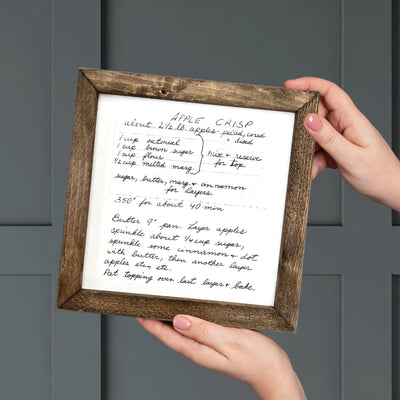 APPLE CRISP
about 2½ lb. apples - peeled, cored
+ diced
1 cup oatmeal
1 cup brown sugar
1 cup flour
½ cup melted marg.
Mix & reserve
for top
sugar, butter, marg. & cinnamon
for layers.
350° for about 40 min
Butter 9" pan. Layer apples
sprinkle about ¼ cup sugar,
sprinkle some cinnamon & dot
with butter, then another layer
apples etc, etc.
Pat topping over last layer & bake.